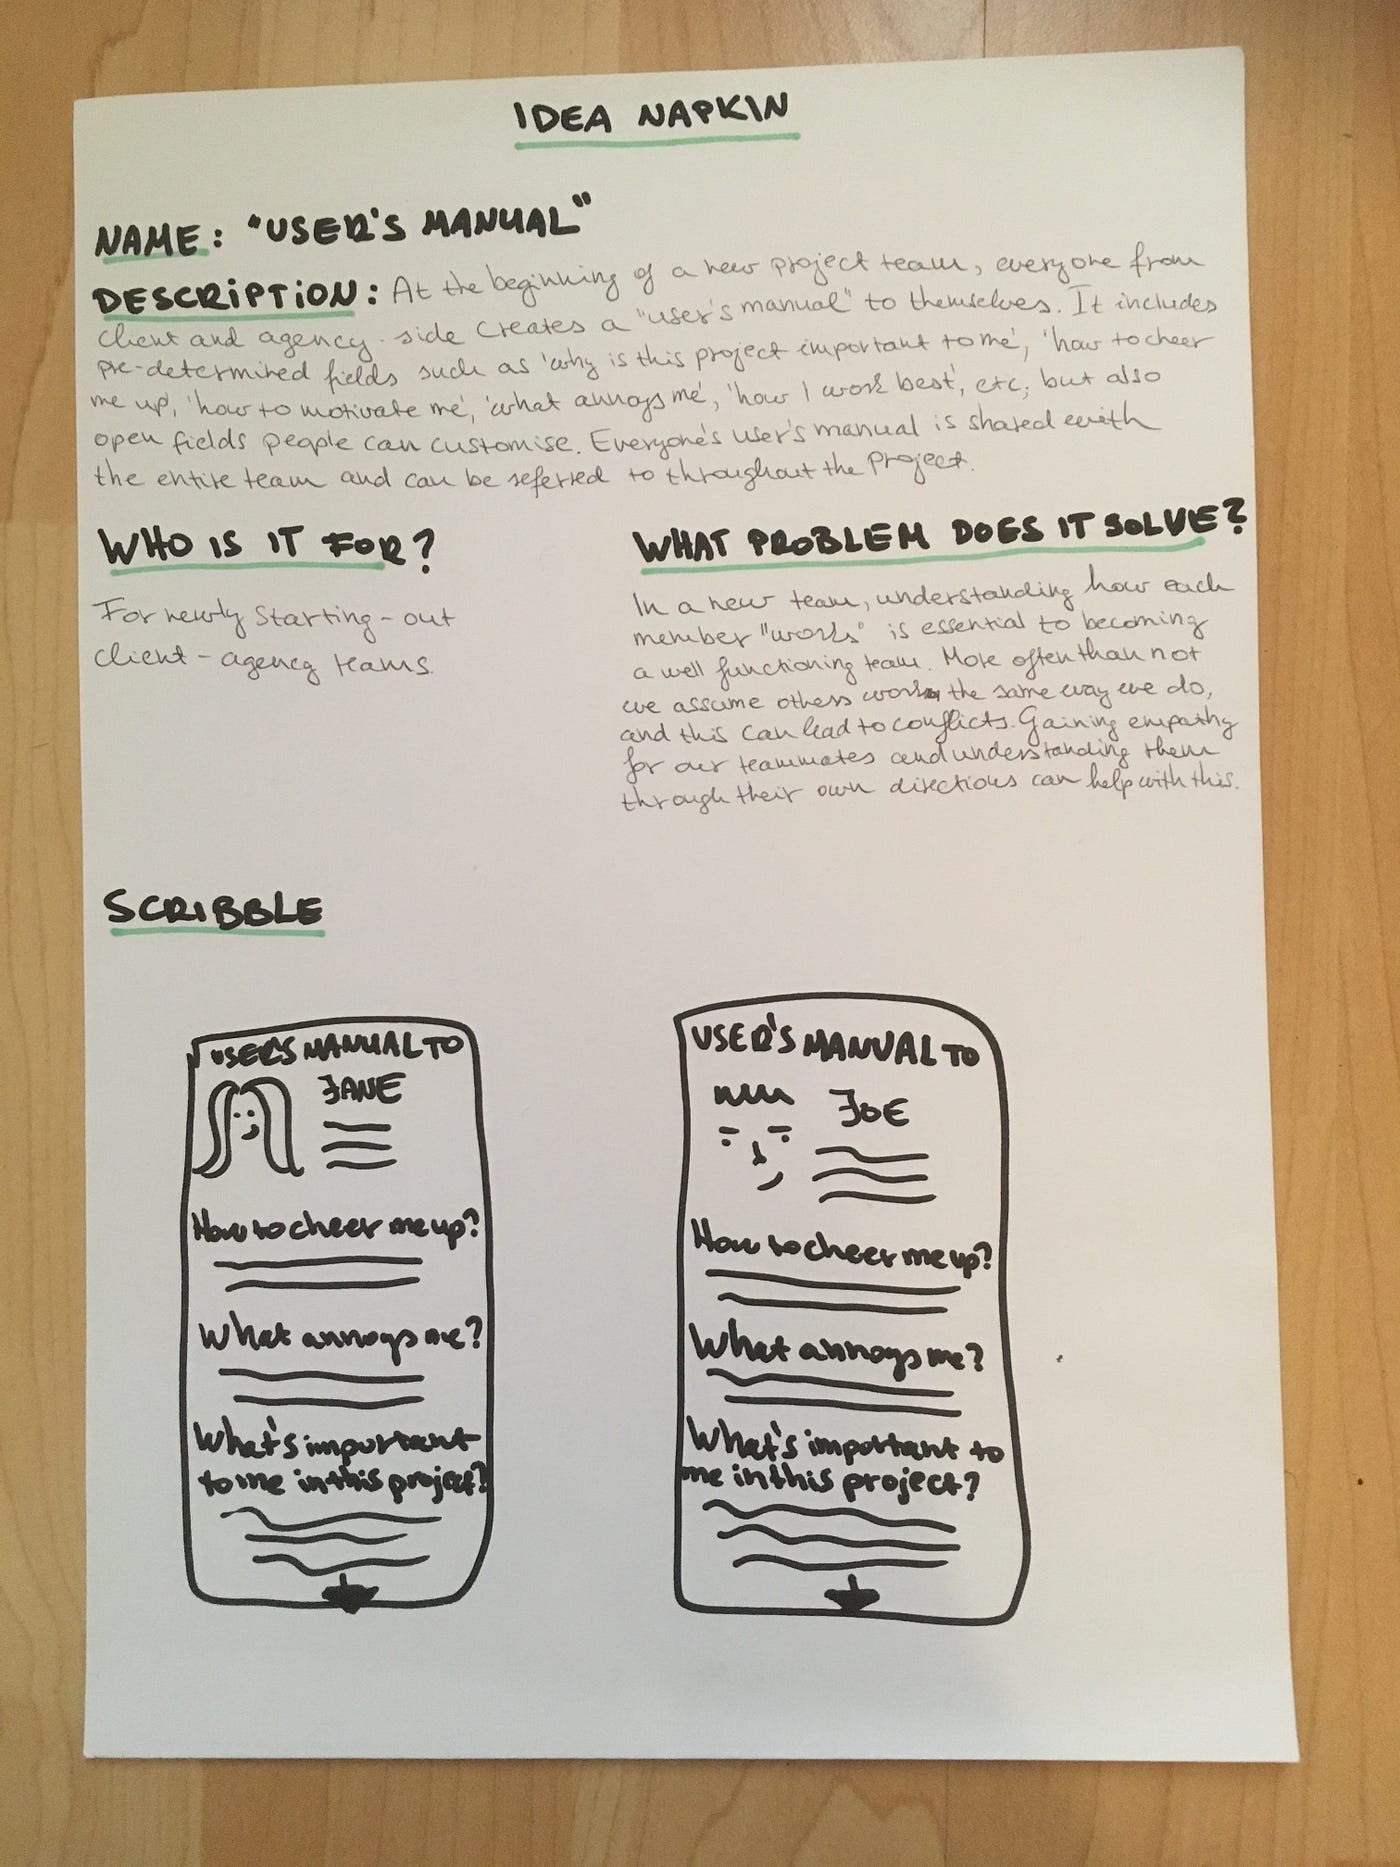 IDEA NAPKIN
NAME: "USER'S MANUAL"
DESCRIPTION: At the beginning of a new project team, everyone from
client and agency-side creates a "user's manual" to themselves. It includes
pre-determined fields such as 'why is this project important to me', 'how to cheer
me up', 'how to motivate me', 'what annoys me', 'how I work best', etc, but also
open fields people can customise. Everyone's user's manual is shared with
the entire team and can be referred to throughout the project.
WHO IS IT FOR?
For newly starting-out
client-agency teams.
WHAT PROBLEM DOES IT SOLVE?
In a new team, understanding how each
member "works" is essential to becoming
a well functioning team. More often than not
we assume others work the same way we do,
and this can lead to conflicts. Gaining empathy
for our teammates and understanding them
through their own directions can help with this.
SCRIBBLE
USER'S MANUAL TO
JANE
How to cheer me up?
What annoys me?
What's important
to me in this project?
USER'S MANUAL TO
JOE
How to cheer me up?
What annoys me?
What's important to
me in this project?